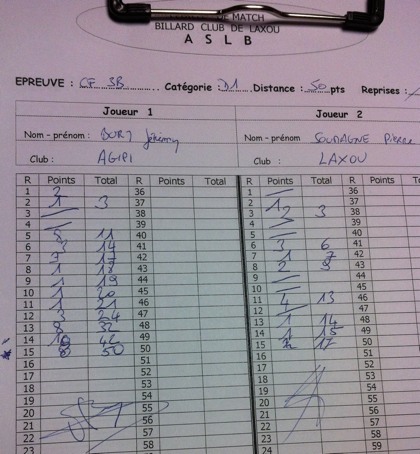 DE MATCH
BILLARD CLUB DE LAXOU
A S L B
EPREUVE : CF 3B Catégorie : D1 Distance : 50 pts Reprises :
Joueur 1 Joueur 2
Nom - prénom : BURY Jérémy Nom - prénom : SOUDAGNE Pierre
Club : AGIPI Club : LAXOU
R Points Total R Points Total R Points Total R Points
1 2 36 1 36
2 1 3 37 2 1 37
3 38 3 2 3 38
4 39 4 39
5 11 40 5 40
6 3 14 41 6 3 6 41
7 17 42 7 1 7 42
8 1 18 43 8 2 9 43
9 1 19 44 9 44
10 1 20 45 10 45
11 1 21 46 11 4 13 46
12 3 24 47 12 47
13 8 32 48 13 1 14 48
14 10 42 49 14 1 15 49
15 8 50 50 15 2 17 50
16 51 16 51
17 52 17 52
18 53 18 53
19 54 19 54
20 55 20 55
21 56 21 56
22 57 22 57
23 58 23 58
24